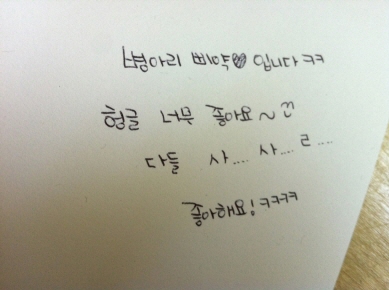 병아리 삐약♥ 입니다ㅋㅋ
헝글 너무 좋아요~
다들 사.... 사.... ㄹ....
좋아해요!ㅋㅋㅋㅋ